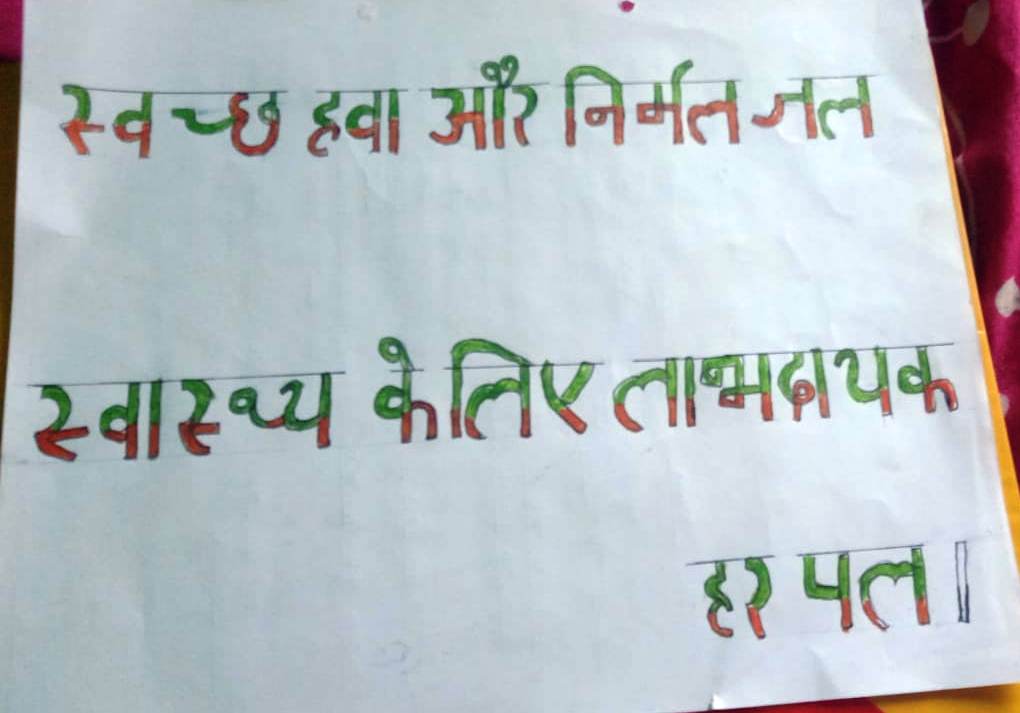 स्वच्छ हवा और निर्मल जल
स्वास्थ्य के लिए लाभदायक
हर पल।